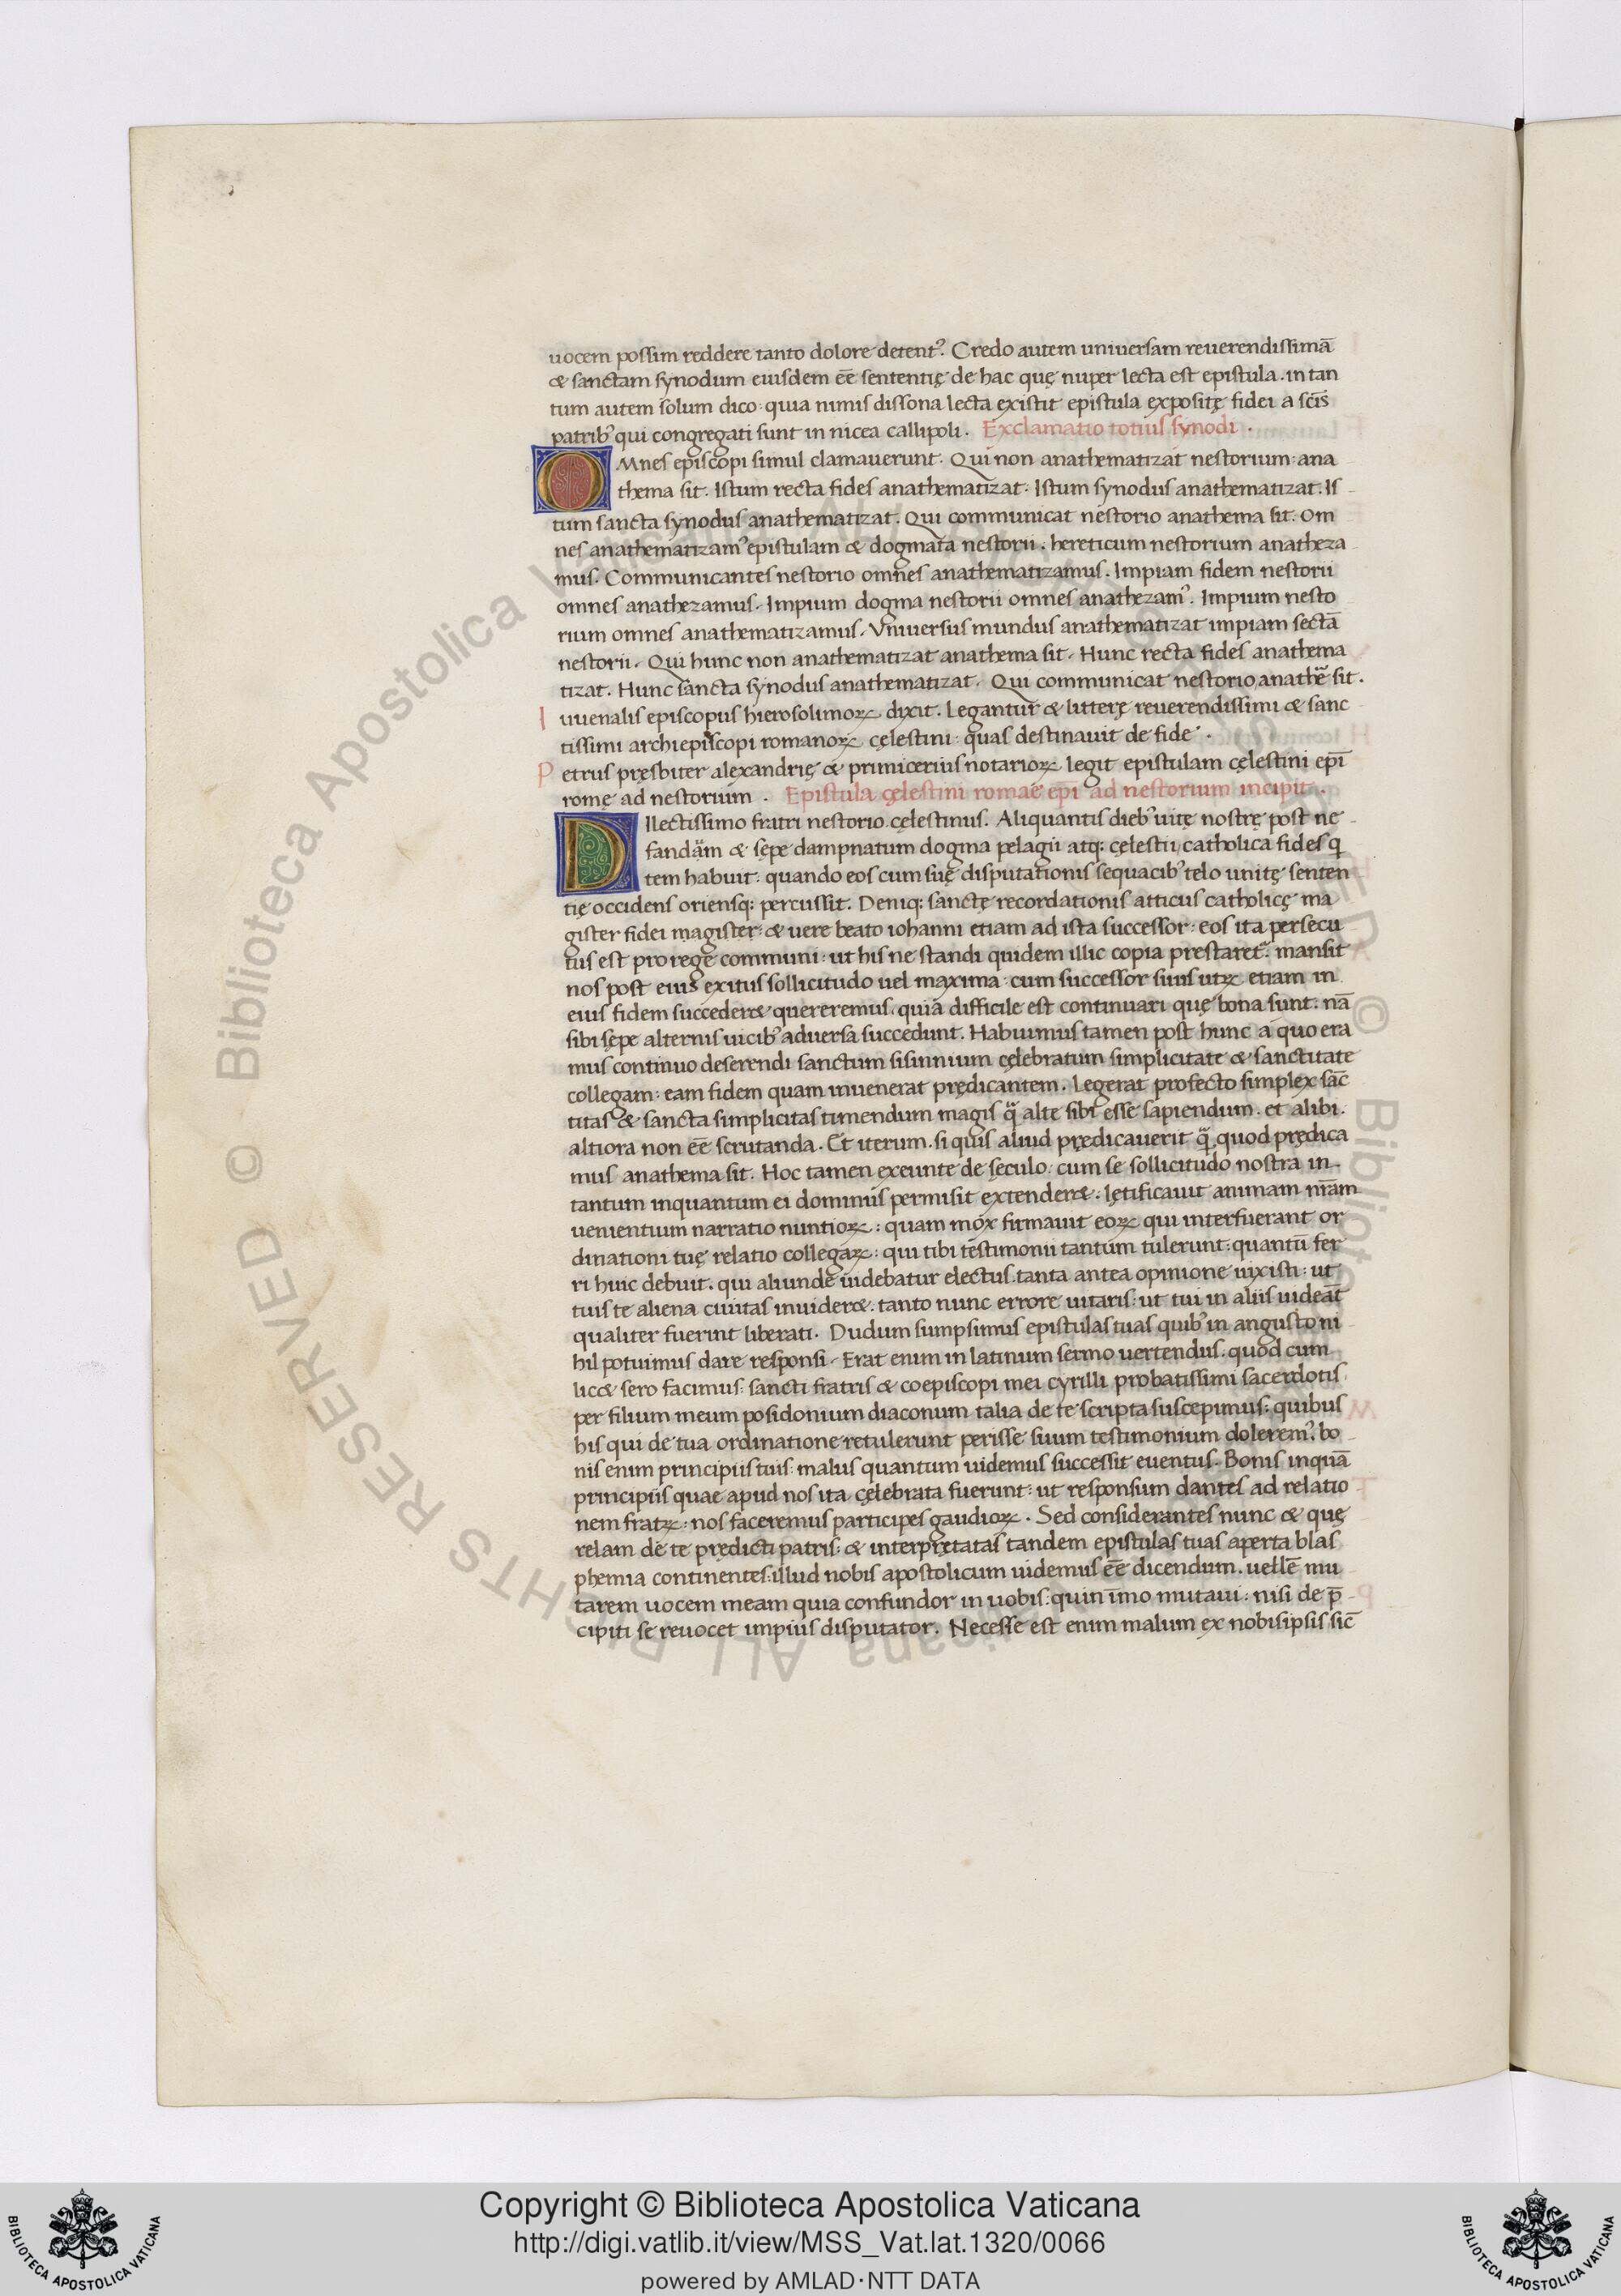 uocem possim reddere tanto dolore detentꝰ. Credo autem uniuersam reuerendissimā
& sanctam synodum eiusdem eē sententię de hac quę nuper lecta est epistula. in tan
tum autem solum dico: quia nimis dissona lecta existit epistula expositę fidei a scīs
patribꝰ qui congregati sunt in nicea callipoli. Exclamatio totius synodi.
OMnes episcopi simul clamauerunt. Qui non anathematizat nestorium: ana
thema sit. Istum recta fides anathematizat. Istum synodus anathematizat. Is
tum sancta synodus anathematizat. Qui communicat nestorio anathema sit. Om
nes anathematizamꝰ epistulam & dogmata nestorii. hereticum nestorium anatheza
mus. Communicantes nestorio omnes anathematizamus. Impiam fidem nestorii
omnes anathezamus. Impium dogma nestorii omnes anathezamꝰ. Impium nesto
rium omnes anathematizamus. Vniuersus mundus anathematizat impiam sectā
nestorii. Qui hunc non anathematizat anathema sit. Hunc recta fides anathema
tizat. Hunc sancta synodus anathematizat. Qui communicat nestorio anathē sit.
Iuuenalis episcopus hierosolimoꝝ dixit. Legantur & litterę reuerendissimi & sanc
tissimi archiepiscopi romanoꝝ cęlestini: quas destinauit de fide.
Petrus pręsbiter alexandrię & primicerius notarioꝝ legit epistulam cęlestini ep̄i
romę ad nestorium. Epistula cęlestini romae ep̄i ad nestorium incipit.
DIlectissimo fratri nestorio cęlestinus. Aliquantis diebꝰ uitę nostrę post ne
fandam & sępe dampnatum dogma pelagii atq; cęlestii catholica fides q
tem habuit: quando eos cum suę disputationis sequacibꝰ telo unitę senten
tię occidens oriensq; percussit. Deniq; sanctę recordationis atticus catholicę ma
gister fidei magister: & uere beato iohanni etiam ad ista successor: eos ita persecu
tus est pro rege communi: ut his ne standi quidem illic copia prestaret: mansit
nos post eius exitus sollicitudo uel maxima: cum successor suus utꝝ etiam in
eius fidem succeder& quereremus. quia difficile est continuari quę bona sunt. nā
sibi sępe alternis uicibꝰ aduersa succedunt. Habuimus tamen post hunc a quo era
mus continuo deserendi sanctum sisinnium cęlebratum simplicitate & sanctitate
collegam: eam fidem quam inuenerat prędicantem. Legerat profecto simplex sāc
titas & sancta simplicitas timendum magis q̄ alte sibi esse sapiendum. et alibi.
altiora non eē scrutanda. Et iterum. si quis aliud prędicauerit q̄ quod prędica
mus anathema sit. Hoc tamen exeunte de sęculo: cum se sollicitudo nostra in
tantum inquantum ei dominus permisit extender&: lętificauit animam nrām
uenientium narratio nuntioꝝ: quam mox firmauit eoꝝ qui interfuerant or
dinationi tuę relatio collegaꝝ: qui tibi testimonii tantum tulerunt: quantū fer
ri huic debuit. qui aliunde uidebatur electus. tanta antea opinione uixisti: ut
tuis te aliena ciuitas inuider&: tanto nunc errore uitaris: ut tui in aliis uideāt
qualiter fuerint liberati. Dudum sumpsimus epistulas tuas quibꝰ in angusto ni
hil potuimus dare responsi. Erat enim in latinum sermo uertendus. quod cum
lic& sero facimus: sancti fratris & coepiscopi mei cyrilli probatissimi sacerdotis
per filium meum posidonium diaconum talia de te scripta suscepimus: quibus
his qui de tua ordinatione retulerunt perisse suum testimonium doleremꝰ. bo
nis enim principiis tuis: malus quantum uidemus successit euentus. Bonis inquā
principiis quae apud nos ita cęlebrata fuerunt: ut responsum dantes ad relatio
nem fratꝝ: nos faceremus participes gaudioꝝ. Sed considerantes nunc & quę
relam de te prędicti patris: & interpretatas tandem epistulas tuas aperta blas
phemia continentes: illud nobis apostolicum uidemus eē dicendum. uellē mu
tarem uocem meam quia confundor in uobis: quin īmo mutaui: nisi de p̄
cipiti se reuocet impius disputator. Necesse est enim malum ex nobisipsis sic̄
Copyright © Biblioteca Apostolica Vaticana
http://digi.vatlib.it/view/MSS_Vat.lat.1320/0066
powered by AMLAD·NTT DATA
BIBLIOTECA APOSTOLICA VATICANA
BIBLIOTECA APOSTOLICA VATICANA
© Biblioteca Apostolica Vaticana ALL RIGHTS RESERVED